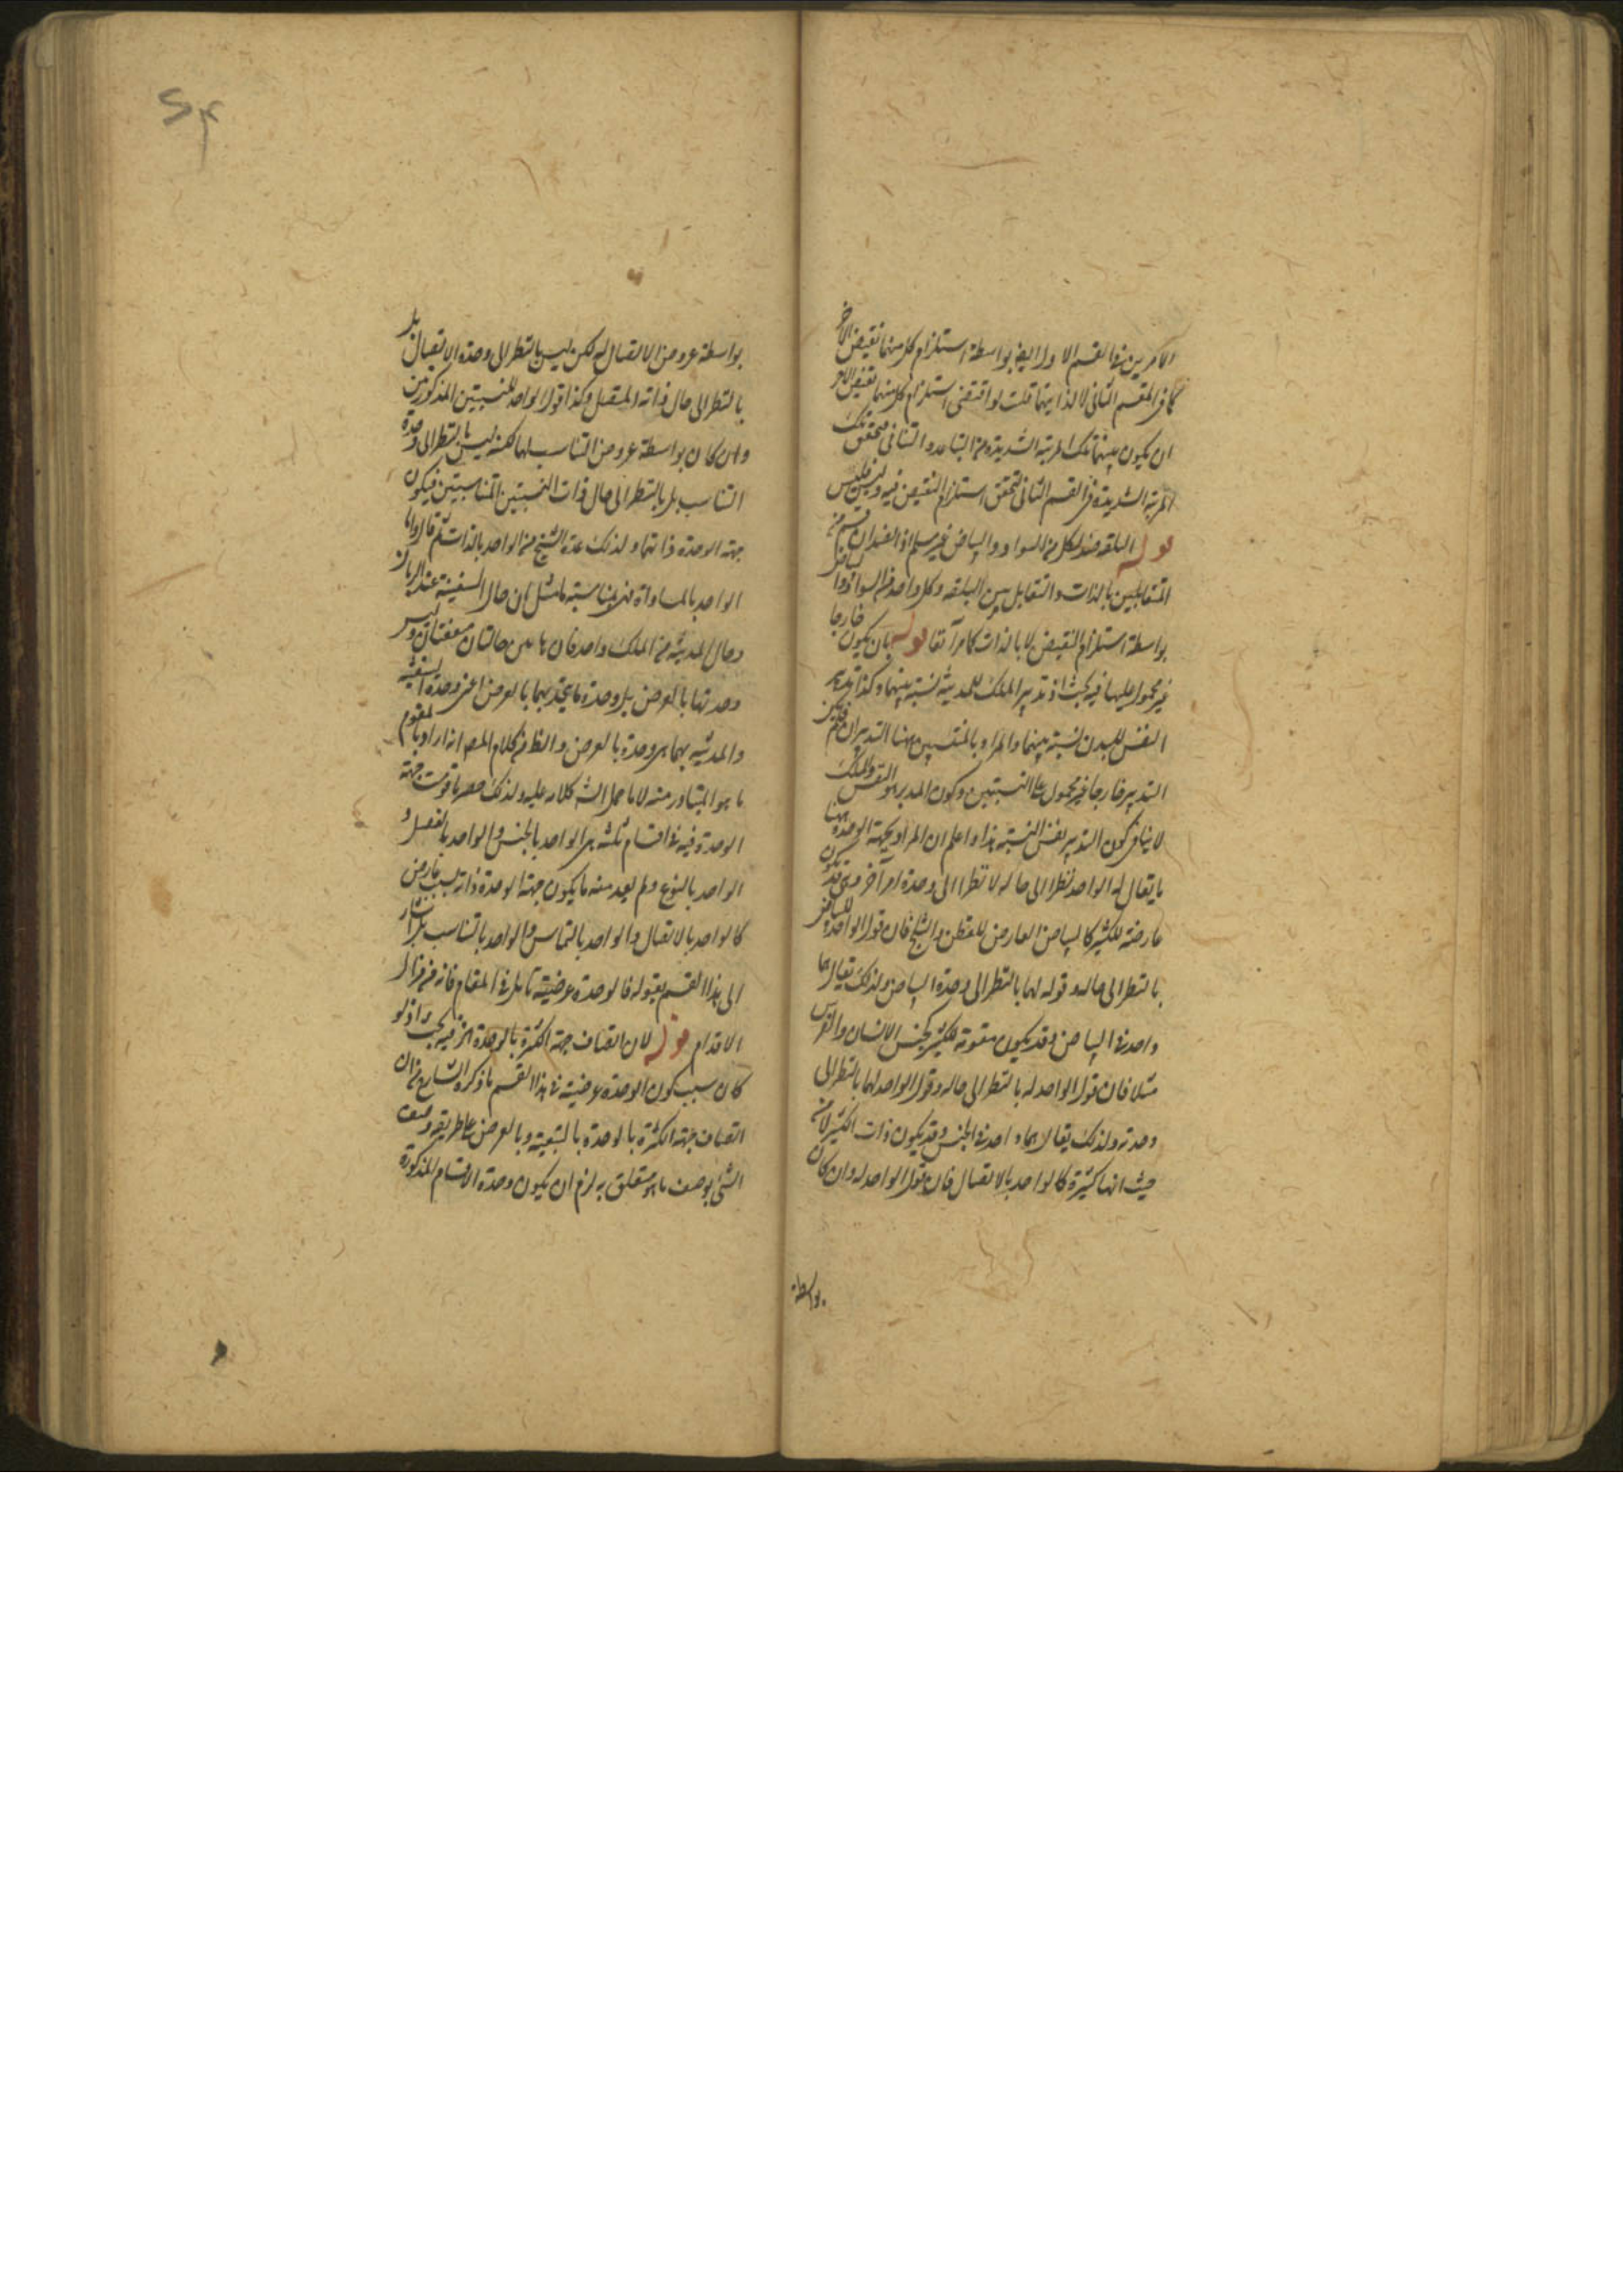 الامرين في القسم الاول ايضا بواسطة استلزام كل منهما نقيض الآخر
كما في القسم الثاني لا لذاتيهما قلت لو اقتضى استلزام كل منهما نقيض الآخر
ان يكون بينهما تلك المرتبة الشديدة من التباعد والتنافي لتحقق تلك
المرتبة الشديدة في القسم الثاني لتحقق استلزام النقيض فيه وليس فليس
قوله البلقة ضد لكل من السواد والبياض غير مسلم اذ الضدان قسم من
المتقابلين بالذات والتقابل بين البلقة وكل واحد من السواد والبياض
بواسطة استلزام النقيض لا بالذات كما مر آنفا قوله بان يكون خارجا
غير محمول عليها فيه بحث اذ تدبير الملك للمدينة نسبة بينهما وكذا تدبير
النفس للبدن نسبة بينهما والمراد بالنسبتين هنا التدبيران فلم يكن
التدبير خارجا غير محمول على النسبتين وكون المدبر هو النفس والملك
لا ينافي كون التدبير نفس النسبة هذا واعلم ان المراد بجهة الوحدة هنا
ما يقال له الواحد نظرا الى حاله لا نظرا الى وحدة امر آخر وهي قد تكون
عارضة للكثير كالبياض العارض للقطن والثلج فان قول الواحد للبياض
بالنظر الى حاله وقوله لهما بالنظر الى وحدة البياض ولذلك يقال هما
واحد في البياض وقد يكون مقومة للكثير كجنس الانسان والفرس
مثلا فان قول الواحد له بالنظر الى حاله وقول الواحد لهما بالنظر الى
وحدته ولذلك يقال هما واحد في الجنس وقد يكون ذات الكثير لا من
حيث انها كثيرة كالواحد بالاتصال فان قول الواحد له وان كان
بواسطة
بواسطة عروض الاتصال له لكن ليس بالنظر الى وحدة الاتصال بل
بالنظر الى حال ذاته المتصل وكذا قول الواحد للنسبتين المذكورتين
وان كان بواسطة عروض التناسب لهما لكنه ليس بالنظر الى وحدة
التناسب بل بالنظر الى حال ذات النسبتين المتناسبتين فيكون
جهة الوحدة ذاتهما ولذلك عده الشيخ من الواحد بالذات ثم قال واما
الواحد بالمساواة فهي مناسبة ما مثل ان حال السفينة عند الربان
وحال المدينة من الملك واحد فان هاتين حالتان متفقتان وليس
وحدتهما بالعرض بل وحدة ما يتحد بهما بالعرض اعني وحدة السفينة
والمدينة بهما هي وحدة بالعرض والظ من كلام المص انه اراد بالمقوم
ما هو المتبادر منه لا ما حمل الش كلامه عليه ولذلك حصر ما قومت جهة
الوحدة فيه في اقسام ثلثة هي الواحد بالجنس والواحد بالفصل و
الواحد بالنوع ولم يعد منه ما يكون جهة الوحدة ذاته بسبب عارض
كالواحد بالاتصال والواحد بالتماس والواحد بالتناسب بل اشار
الى هذا القسم بقوله فالوحدة عرضية تأمل في المقام فانه من مزال
الاقدام قوله لان اتصاف جهة الكثرة بالوحدة الخ فيه بحث اذ لو
كان سبب كون الوحدة عرضية في هذا القسم ما ذكره الشارح من ان
اتصاف جهة الكثرة بالوحدة بالتبعية وبالعرض على طريقة وصف
الشيء بوصف ما هو متعلق به لزم ان يكون وحدة الاقسام المذكورة